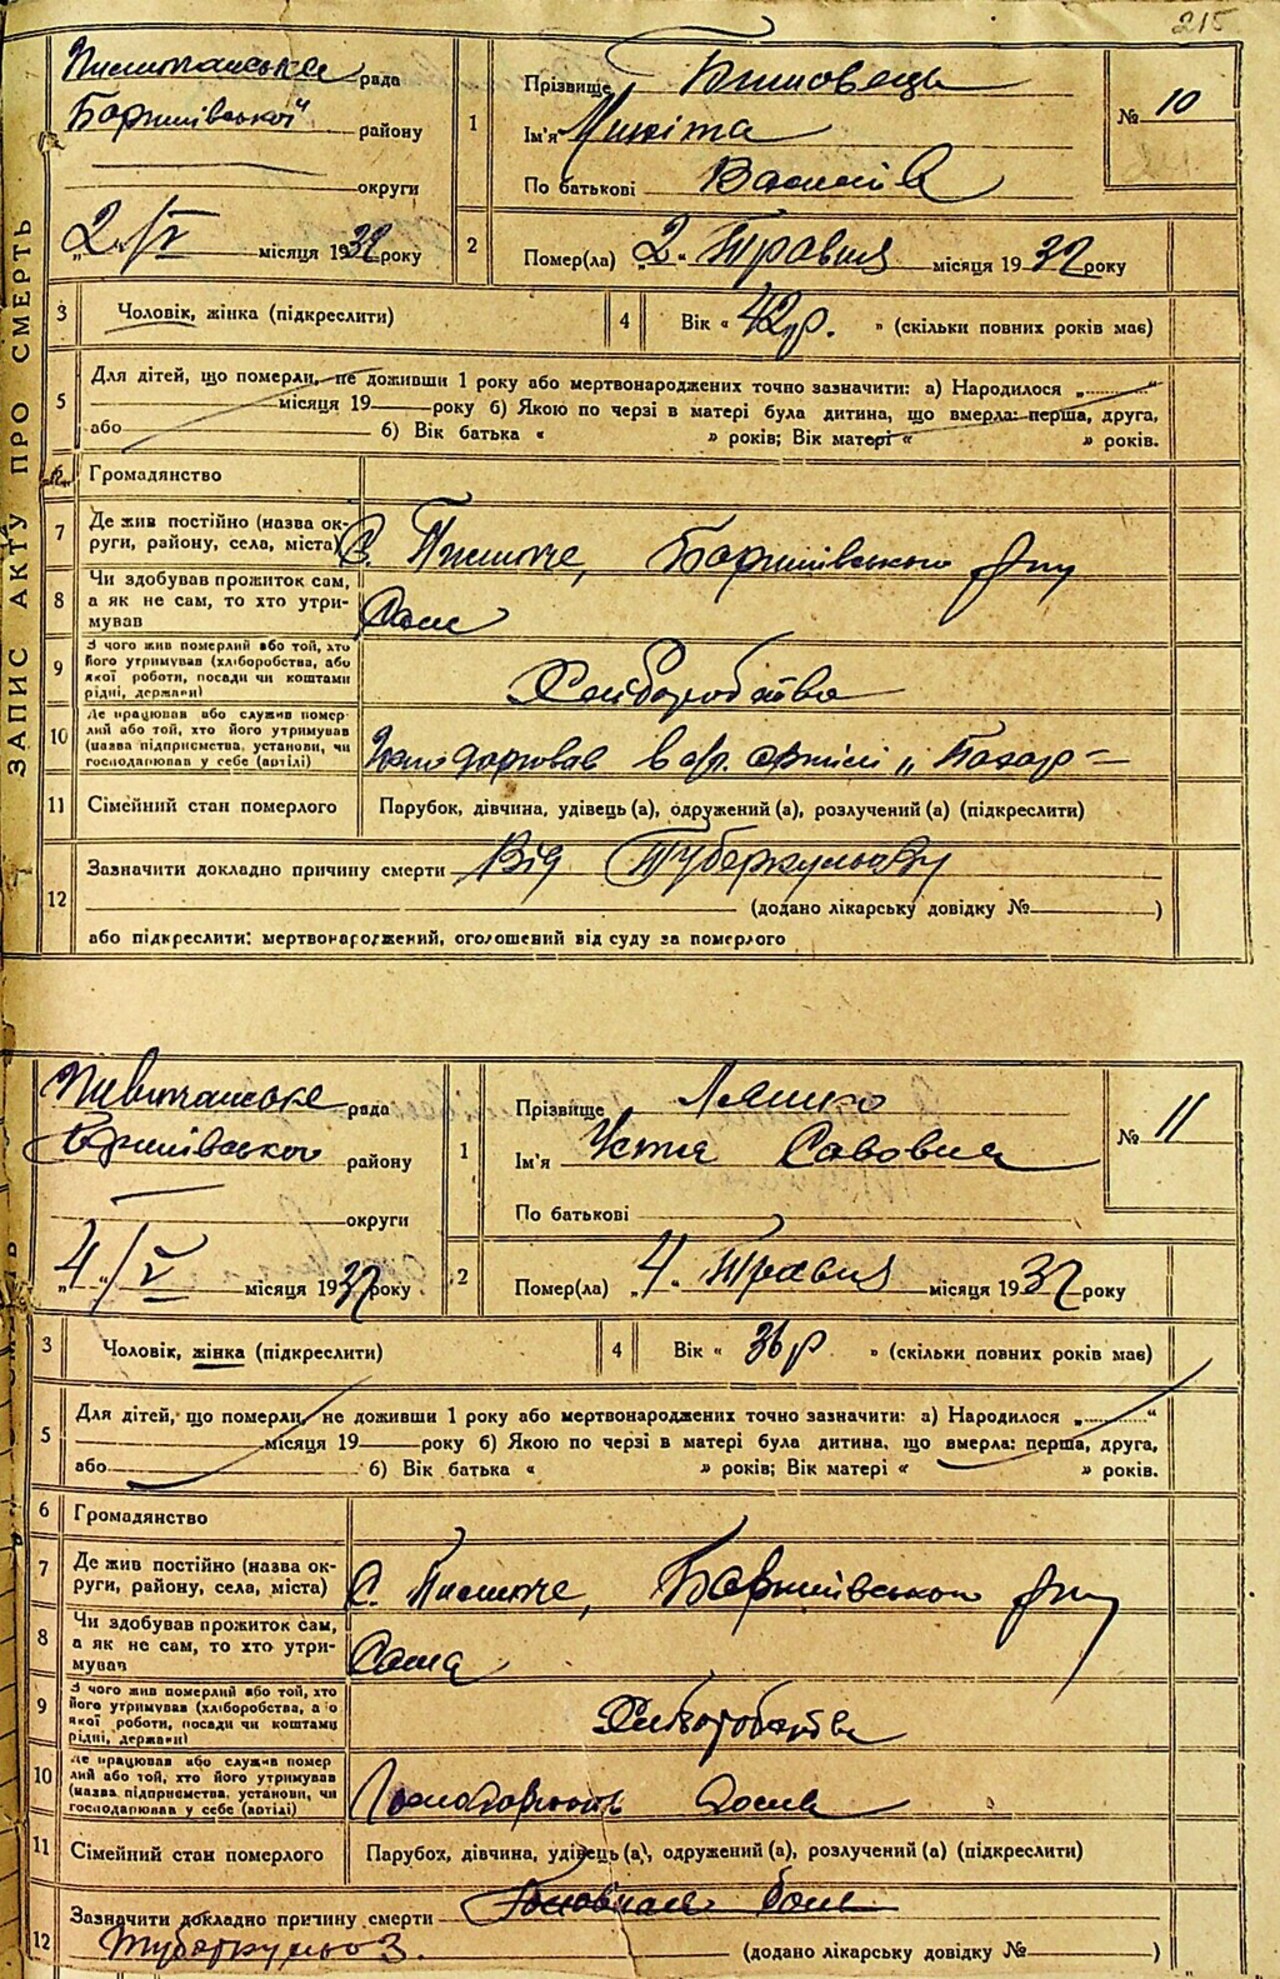 215
ЗАПИС АКТУ ПРО СМЕРТЬ
рада
району
округи
„2“ /V місяця 1932 року
1
Прізвище
Ім'я Микіта
По батькові
№ 10
2
Помер(ла) „2“ Травня місяця 1932 року
3
Чоловік, жінка (підкреслити)
4
Вік « 42 р. » (скільки повних років має)
5
Для дітей, що померли, не доживши 1 року або мертвонароджених точно зазначити: а) Народилося „..........“
місяця 19 року б) Якою по черзі в матері була дитина, що вмерла: перша, друга,
або б) Вік батька « » років; Вік матері « » років.
Громадянство
7
Де жив постійно (назва ок-
руги, району, села, міста) С. , Баришівського р-ну
8
Чи здобував прожиток сам,
а як не сам, то хто утри-
мував Сам
9
З чого жив померлий або той, хто
його утримував (хліборобства, або
якої роботи, посади чи коштами
рідні, держави) Хліборобства
10
Де працював або служив помер-
лий або той, хто його утримував
(назва підприємства, установи, чи
господарював у себе (артілі) Господарював в с/г. артілі
11
Сімейний стан померлого
Парубок, дівчина, удівець (а), одружений (а), розлучений (а) (підкреслити)
12
Зазначити докладно причину смерти Від Туберкульозу
(додано лікарську довідку № )
або підкреслити: мертвонароджений, оголошений від суду за померлого
рада
Баришівського району
округи
„4“ /V місяця 1932 року
1
Прізвище Ляшко
Ім'я Устя Савовна
По батькові
№ 11
2
Помер(ла) „4“ Травня місяця 1932 року
3
Чоловік, жінка (підкреслити)
4
Вік « 36 р » (скільки повних років має)
5
Для дітей, що померли, не доживши 1 року або мертвонароджених точно зазначити: а) Народилося „..........“
місяця 19 року б) Якою по черзі в матері була дитина, що вмерла: перша, друга,
або б) Вік батька « » років; Вік матері « » років.
6
Громадянство
7
Де жив постійно (назва ок-
руги, району, села, міста) С. , Баришівського р-ну
8
Чи здобував прожиток сам,
а як не сам, то хто утри-
мував Сама
9
З чого жив померлий або той, хто
його утримував (хліборобства, або
якої роботи, посади чи коштами
рідні, держави) Хліборобства
10
Де працював або служив помер
лий або той, хто його утримував
(назва підприємства, установи, чи
господарював у себе (артілі)
11
Сімейний стан померлого
Парубок, дівчина, удівець (а), одружений (а), розлучений (а) (підкреслити)
12
Зазначити докладно причину смерти
Туберкульоз. (додано лікарську довідку № )